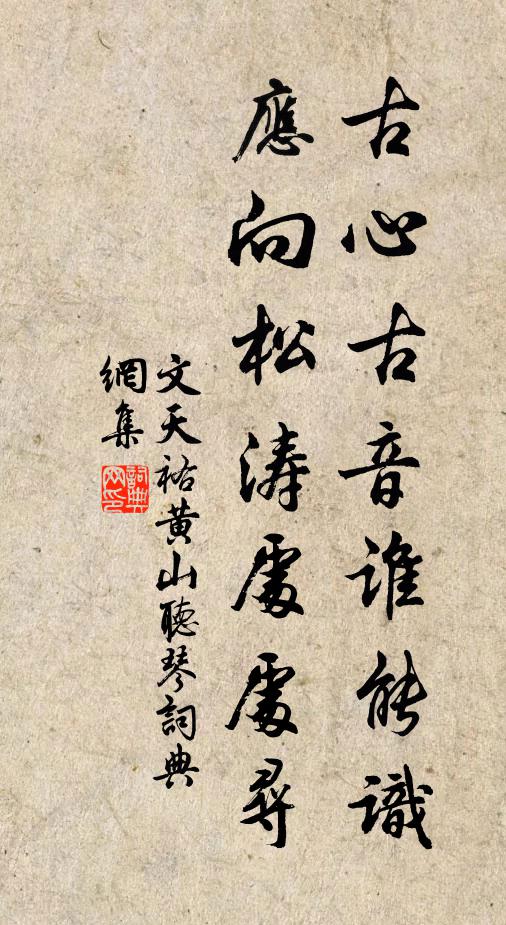 古心古音誰能識
應向松濤處處尋
文天祐黄山聽琴詞典
網集
詞典網印